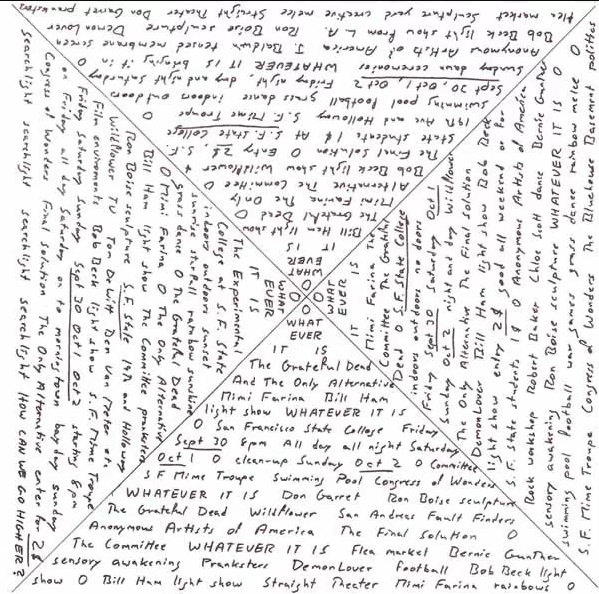 WHAT
EVER
IT IS
The Grateful Dead
And The Only Alternative
Mimi Farina Bill Ham
light show WHATEVER IT IS
O San Francisco State College Friday
Sept 30 8pm All day all night Saturday
Oct 1 O clean-up Sunday Oct 2 O Committee
S F Mime Troupe Swimming Pool Congress of Wonders
WHATEVER IT IS Don Garret Ron Boise sculpture
The Grateful Dead Wildflower San Andreas Fault Finders
Anonymous Artists of America The Final Solution O
The Committee WHATEVER IT IS Flea market Bernie Gunther
sensory awakening Pranksters DemonLover football Bob Beck light
show O Bill Ham light show Straight Theater Mimi Farina rainbows O
WHAT
EVER
IT IS
The Experimental
College at S.F. State
indoors outdoors sunset
sunrise starfall rainbow sunshine
grass dance O The Grateful Dead
O Mimi Farina O The Only Alternative
O Bill Ham light show The Committee pranksters
Ron Boise sculpture S.F. State 19th and Holloway
Wildflower TV Tom DeWitt Don Van etc.
Film enviroments Bob Beck light show S.F. Mime Troupe
Friday Saturday Sunday Sept 30 Oct 1 Oct 2 starting 8pm
on Friday all day Saturday on to morningtown day sunday
Congress of Wonders Final solution The Only Alternative enter for 2$
Searchlight searchlight searchlight searchlight HOW CAN WE GO HIGHER?
WHAT
EVER
IT IS
Bill Ham light show
The Grateful Dead O
Mimi Farina The Only
Alternative The Committee O
Bob Beck light show Wildflower +
The Final Solution O Entry 2$, S.F.
State students At 1$ O S.F. State College
19th Ave and Holloway S.F. Mime Troupe
swimming pool football grass dance indoors outdoors
Sept 30, Oct 1, Oct 2 Friday night, day and night Saturday
Sunday dawn ceremonies WHATEVER IT IS bringing it in O
Anonymous Artists of America J. Baldwin tensed membrane screen
Bob Beck light show from L.A. Ron Boise sculpture Demon Lover
flea market Sculpture yard creative melee Straight Theater Don Garret pranksters
WHAT
EVER
IT IS
Mimi Farina The
Committee The Grateful
Dead O S.F. State College
indoors outdoors no doors
Friday Sept 30 Saturday Oct 1
Sunday Oct 2 night and day Wildflower
The Only Alternative The Final Solution
DemonLover Bill Ham light show Bob Beck
light show entry 2$ Good all weekend or for
S.F. State students 1$ O Anonymous Artists of America
Rock workshop Robert Baker Chloe Scott dance Bernie Gunther
sensory awakening Ron Boise sculpture WHATEVER IT IS O
swimming pool football war games grass dance rainbow melee O
S.F. Mime Troupe Congress of Wonders The Bluehouse Basement